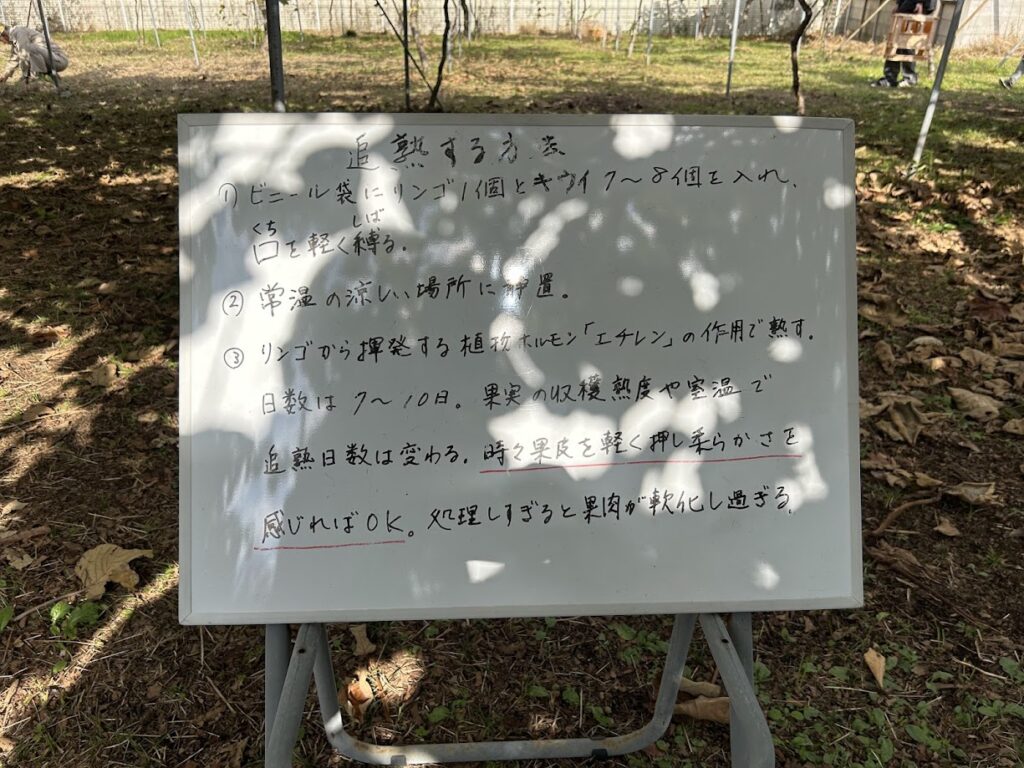 追熟する方法
① ビニール袋にリンゴ1個とキウイ7〜8個を入れ、
口を軽く縛る。
くち しば
② 常温の涼しい場所に静置。
③ リンゴから揮発する植物ホルモン「エチレン」の作用で熟す。
日数は7〜10日。果実の収穫熟度や室温で
追熟日数は変わる。時々果皮を軽く押し柔らかさを
感じればOK。処理しすぎると果肉が軟化し過ぎる。